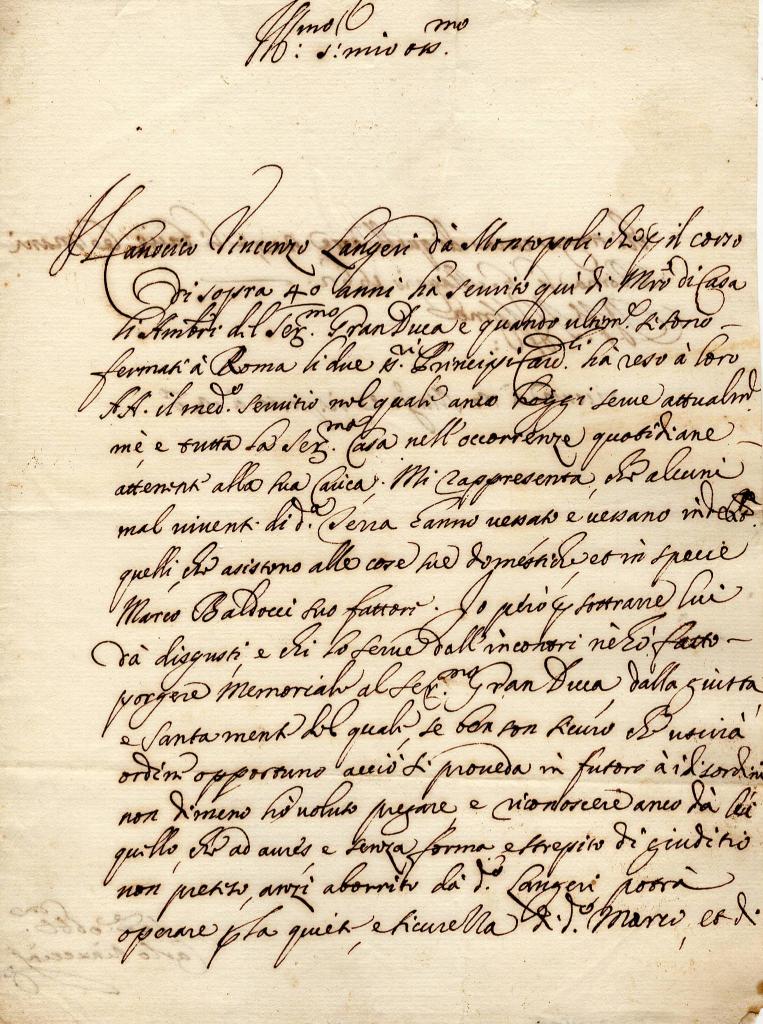 Ill.mo
Sr. mio oss.mo
Il Canonico Vincenzo Langeri dà Montopoli, che p il corso
di sopra 40 anni hà servito qui di Mro di Casa
li Ambri del Ser.mo Gran Duca e quando ultim.te si sono
fermati à Roma li due SS.ri Principi Card.li hà reso à loro
AA. il med.o servitio nel quale anco hoggi serve attualm.te
mè e tutta la Ser.ma Casa nell'occorrenze quotidiane
attenenti alla sua carica. Mi rappresenta, che alcuni
mal viventi di d.a Terra hanno vessato e vessano
quelli, che asistono alle cose sue domestiche, et in specie
Marco Baldocci suo fattore. Io però p sottrarre lui
dà disgusti, e chi lo serve dall'incontri nè hò fatto
porgere Memoriale al Ser.mo Gran Duca, dalla giusta
e santa mente del quale, se ben son sicuro che uscirà
ordine opportuno acciò si proveda in futuro à i disordini
non dimeno hò voluto pregare, e riconoscere anco dà lei
quello, che ad aures e senza forma, e strepito di giuditio
non preteso, anzi aborrito dà d.o Langeri potrà
operare p la quiete, e sicurezza di d.o Marco, et di